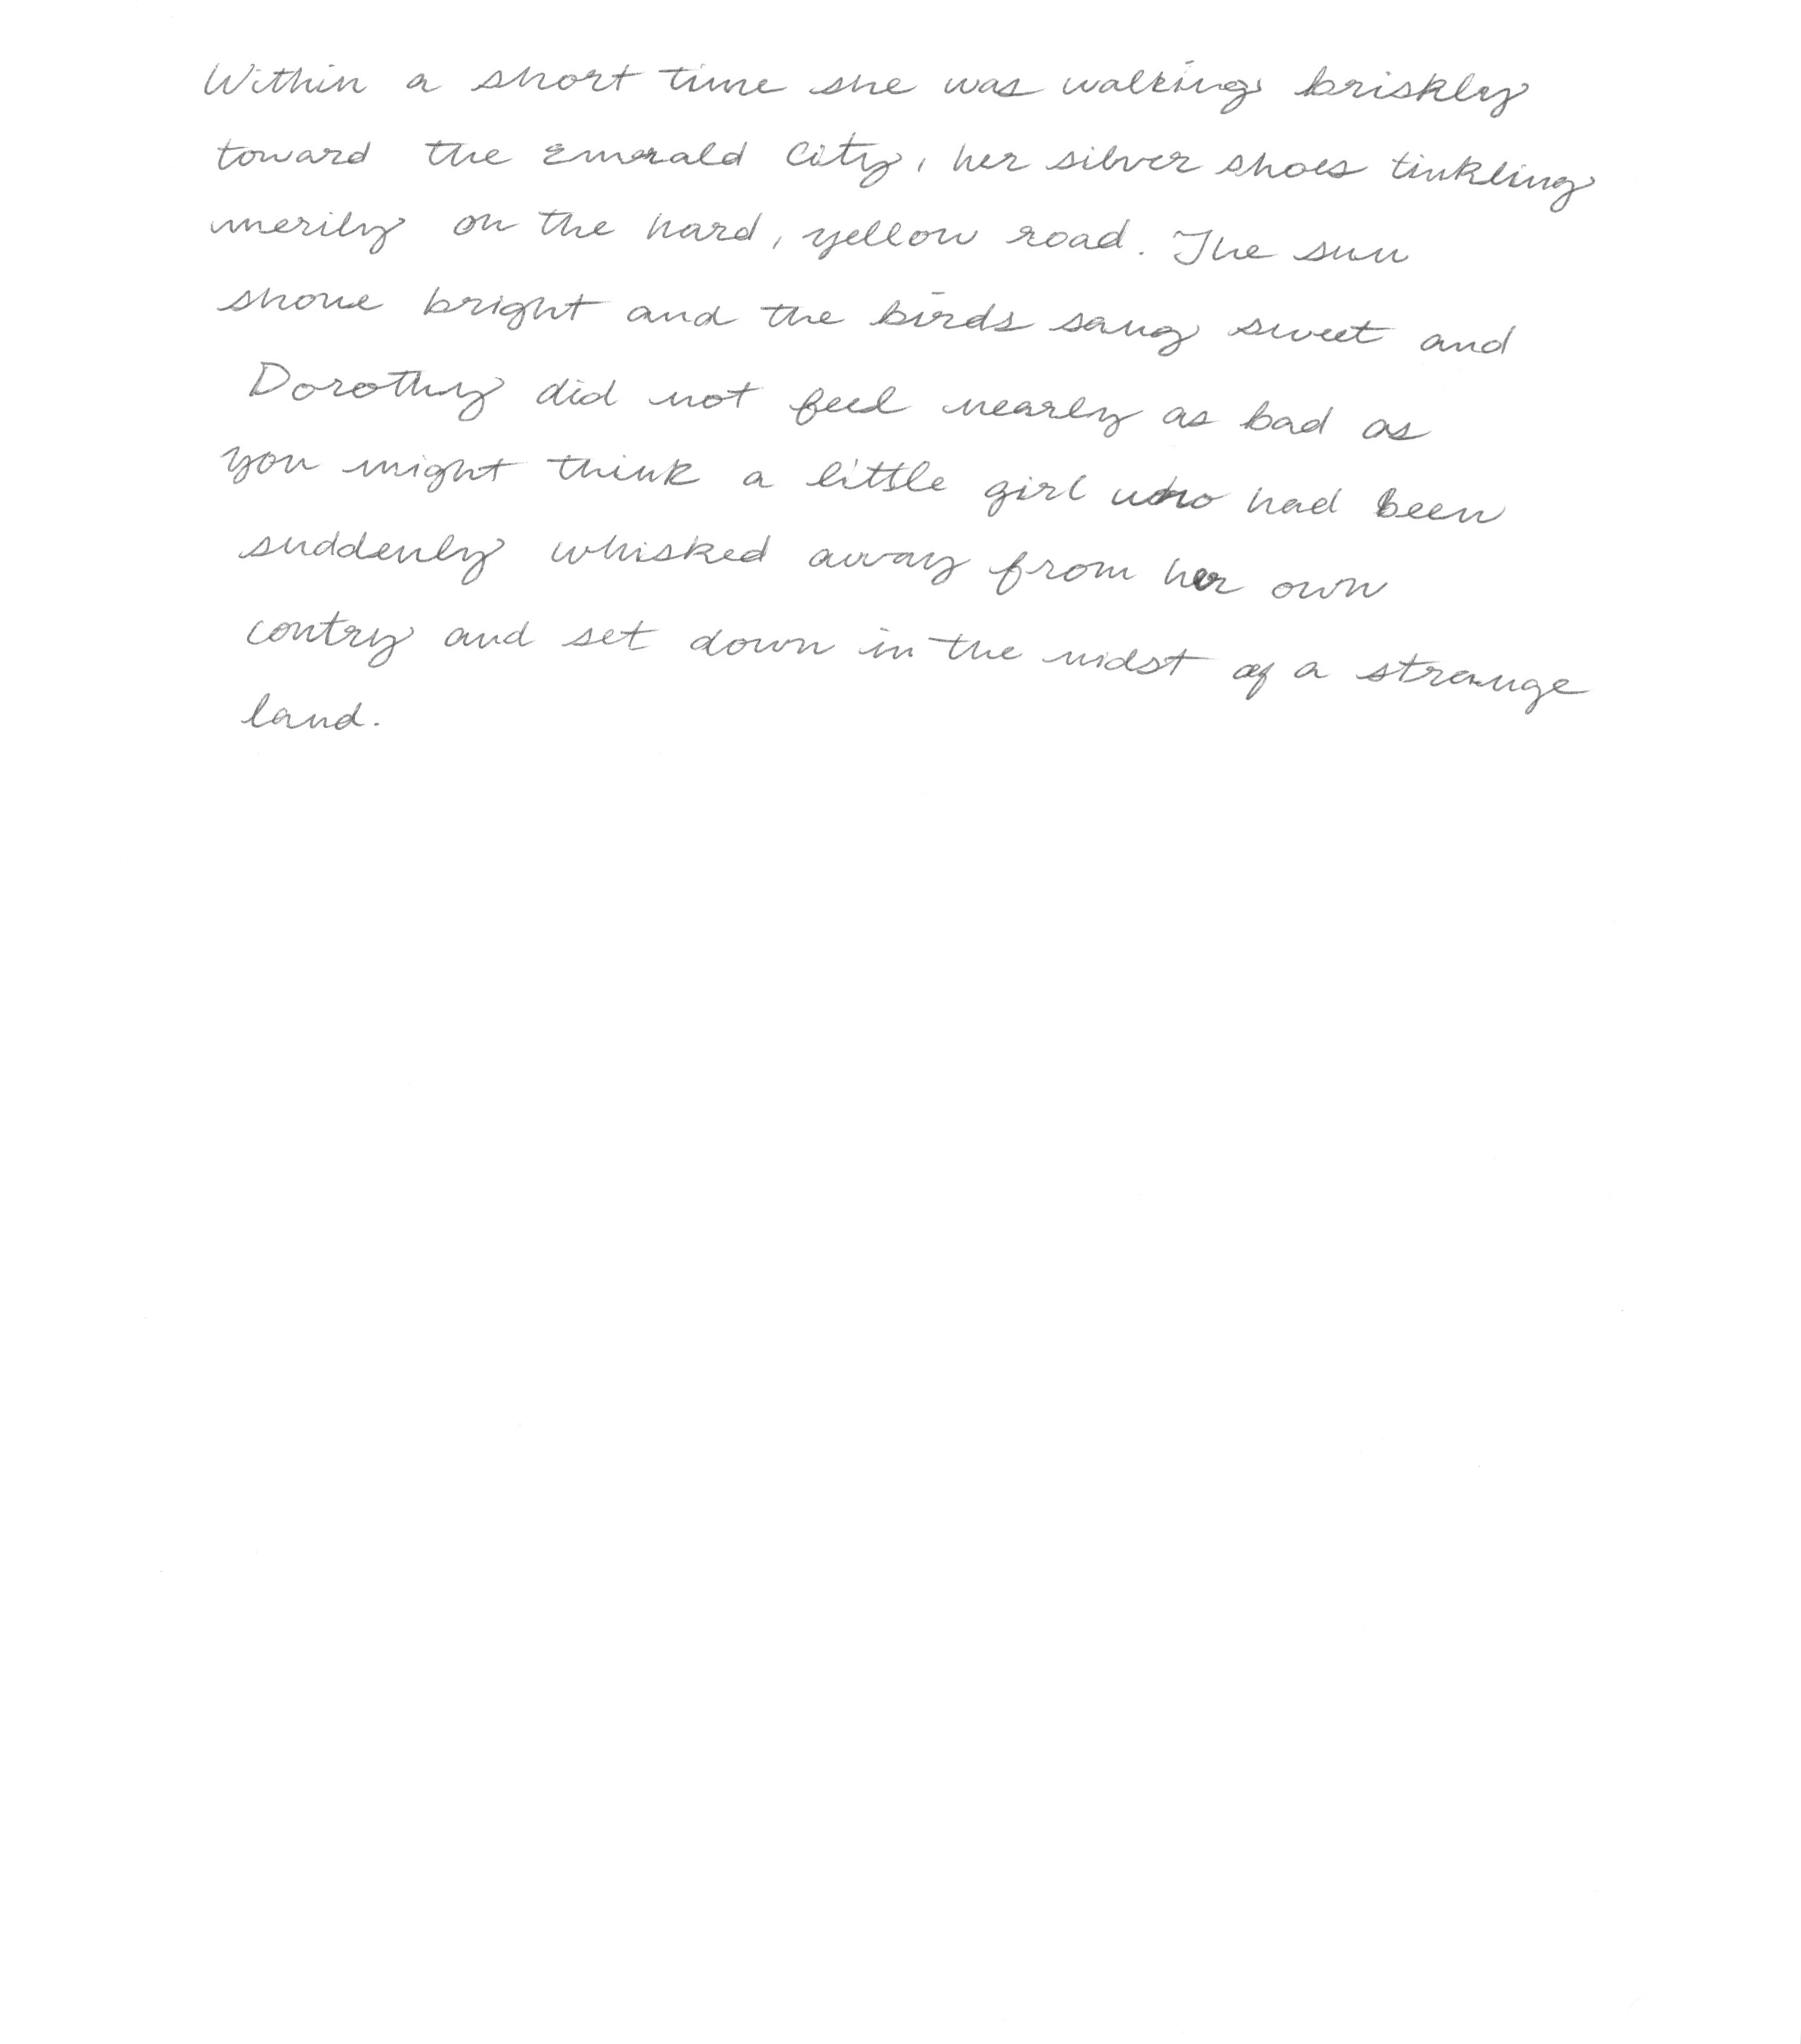 Within a short time she was walking briskly
toward the Emerald City, her silver shoes tinkling
merily on the hard, yellow road. The sun
shone bright and the birds sang sweet and
Dorothy did not feel nearly as bad as
you might think a little girl who had been
suddenly whisked away from her own
contry and set down in the midst of a strange
land.